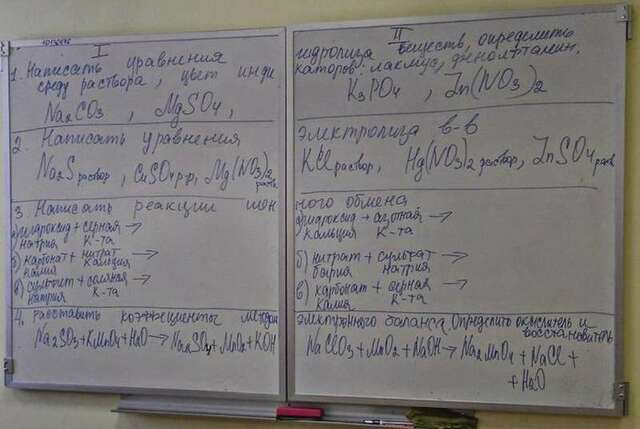 I
1. Написать уравнения
среду раствора, цвет инди
Na2CO3, MgSO4,
2. Написать уравнения
Na2S раствор, CuSO4 р-р, Mg(NO3)2 раств.
3. Написать реакции ион
а) гидроксид + серная →
натрия к-та
б) карбонат + нитрат →
калия кальция
в) сульфит + соляная →
натрия к-та
4. Расставить коэффициенты методом
Na2SO3 + KMnO4 + H2O → Na2SO4 + MnO2 + KOH
II
гидролиза веществ, определить
каторов: лакмус, фенолфталеин.
K3PO4, Zn(NO3)2
электролиза в-в
KCl раствор, Hg(NO3)2 раствор, ZnSO4 раств
ного обмена
а) гидроксид + азотная →
кальция к-та
б) нитрат + сульфат →
бария натрия
в) карбонат + серная →
калия к-та
электронного баланса. Определить окислитель и
восстановитель
NaClO3 + MnO2 + NaOH → Na2MnO4 + NaCl +
+ H2O